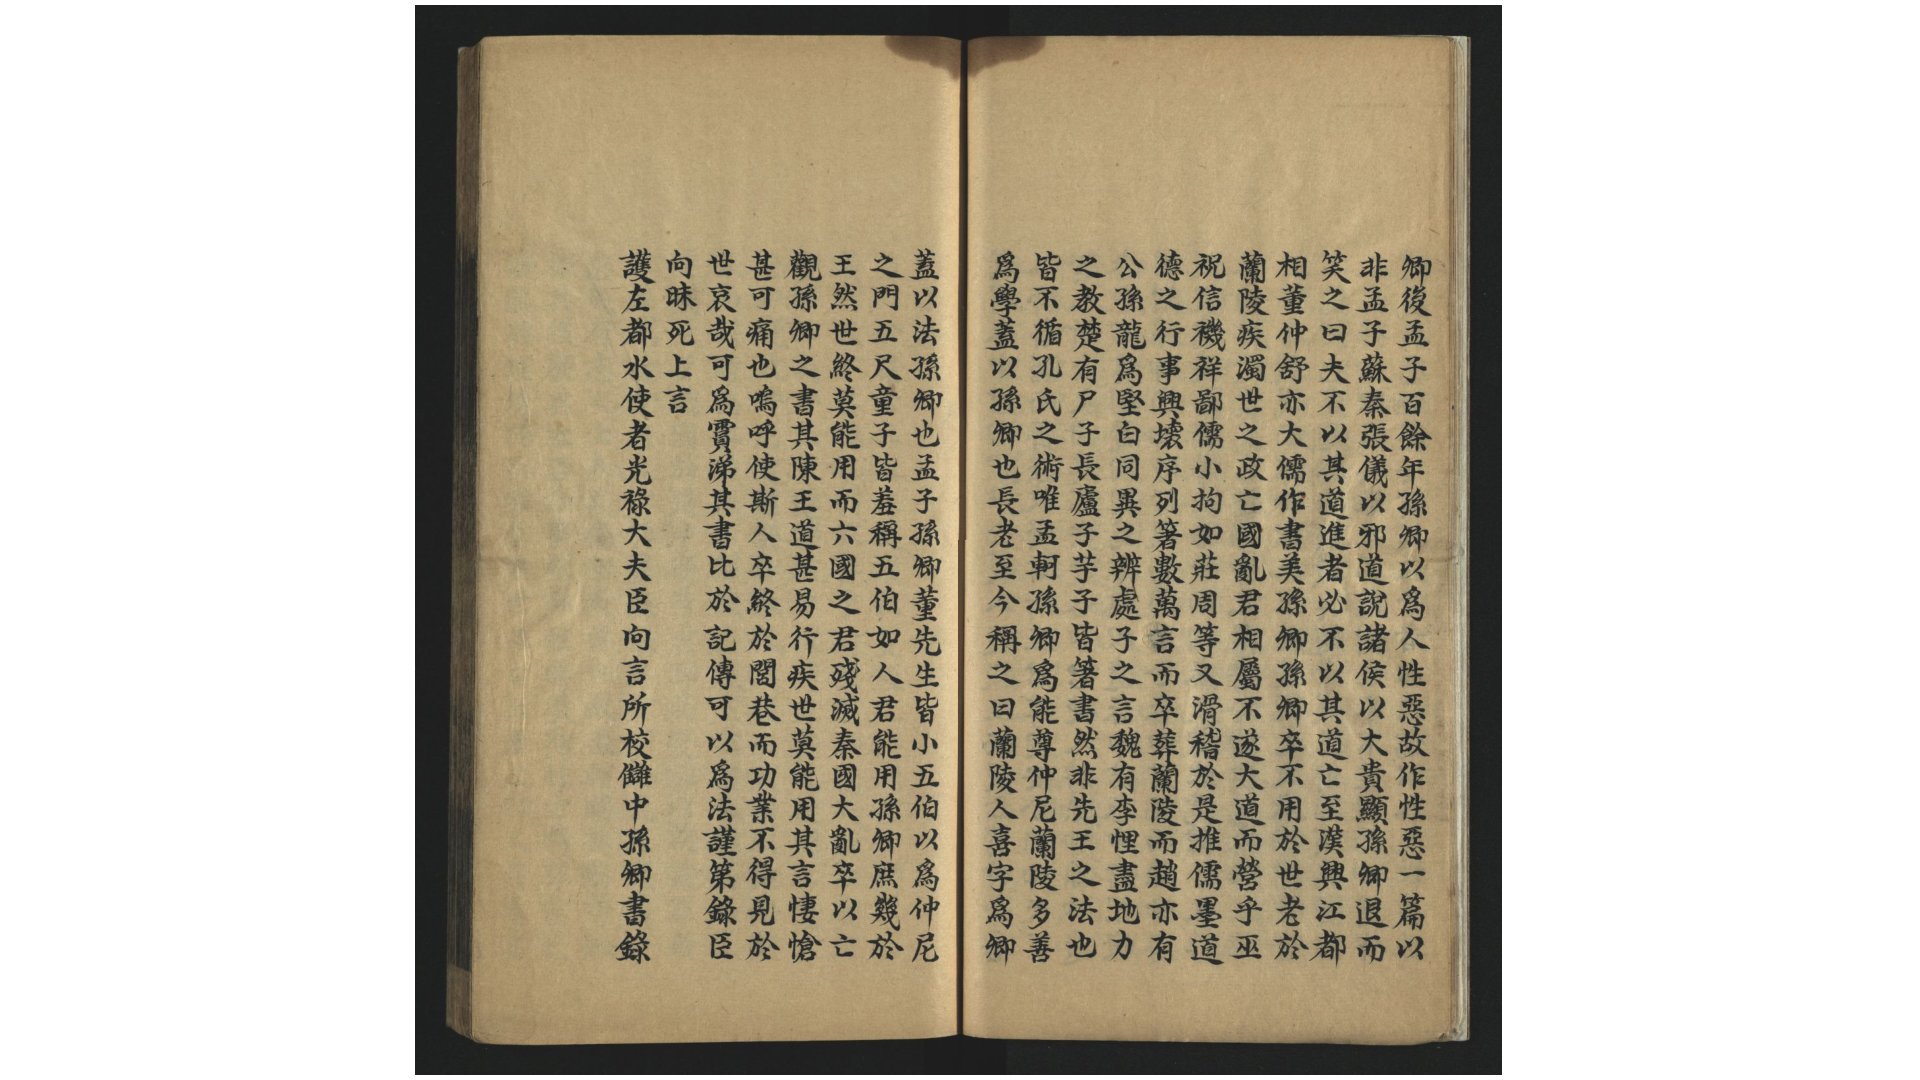 卿後孟子百餘年孫卿以爲人性惡故作性惡一篇以
非孟子蘇秦張儀以邪道說諸侯以大貴顯孫卿退而
笑之曰夫不以其道進者必不以其道亡至漢興江都
相董仲舒亦大儒作書美孫卿孫卿卒不用於世老於
蘭陵疾濁世之政亡國亂君相屬不遂大道而營乎巫
祝信禨祥鄙儒小拘如莊周等又滑稽於是推儒墨道
德之行事興壞序列著數萬言而卒葬蘭陵而趙亦有
公孫龍爲堅白同異之辨處子之言魏有李悝盡地力
之教楚有尸子長廬子芋子皆著書然非先王之法也
皆不循孔氏之術唯孟軻孫卿爲能尊仲尼蘭陵多善
爲學蓋以孫卿也長老至今稱之曰蘭陵人喜字爲卿
蓋以法孫卿也孟子孫卿董先生皆小五伯以爲仲尼
之門五尺童子皆羞稱五伯如人君能用孫卿庶幾於
王然世終莫能用而六國之君殘滅秦國大亂卒以亡
觀孫卿之書其陳王道甚易行疾世莫能用其言悽愴
甚可痛也嗚呼使斯人卒終於閭巷而功業不得見於
世哀哉可爲霣涕其書比於記傳可以爲法謹第錄臣
向昧死上言
護左都水使者光祿大夫臣向言所校讎中孫卿書錄